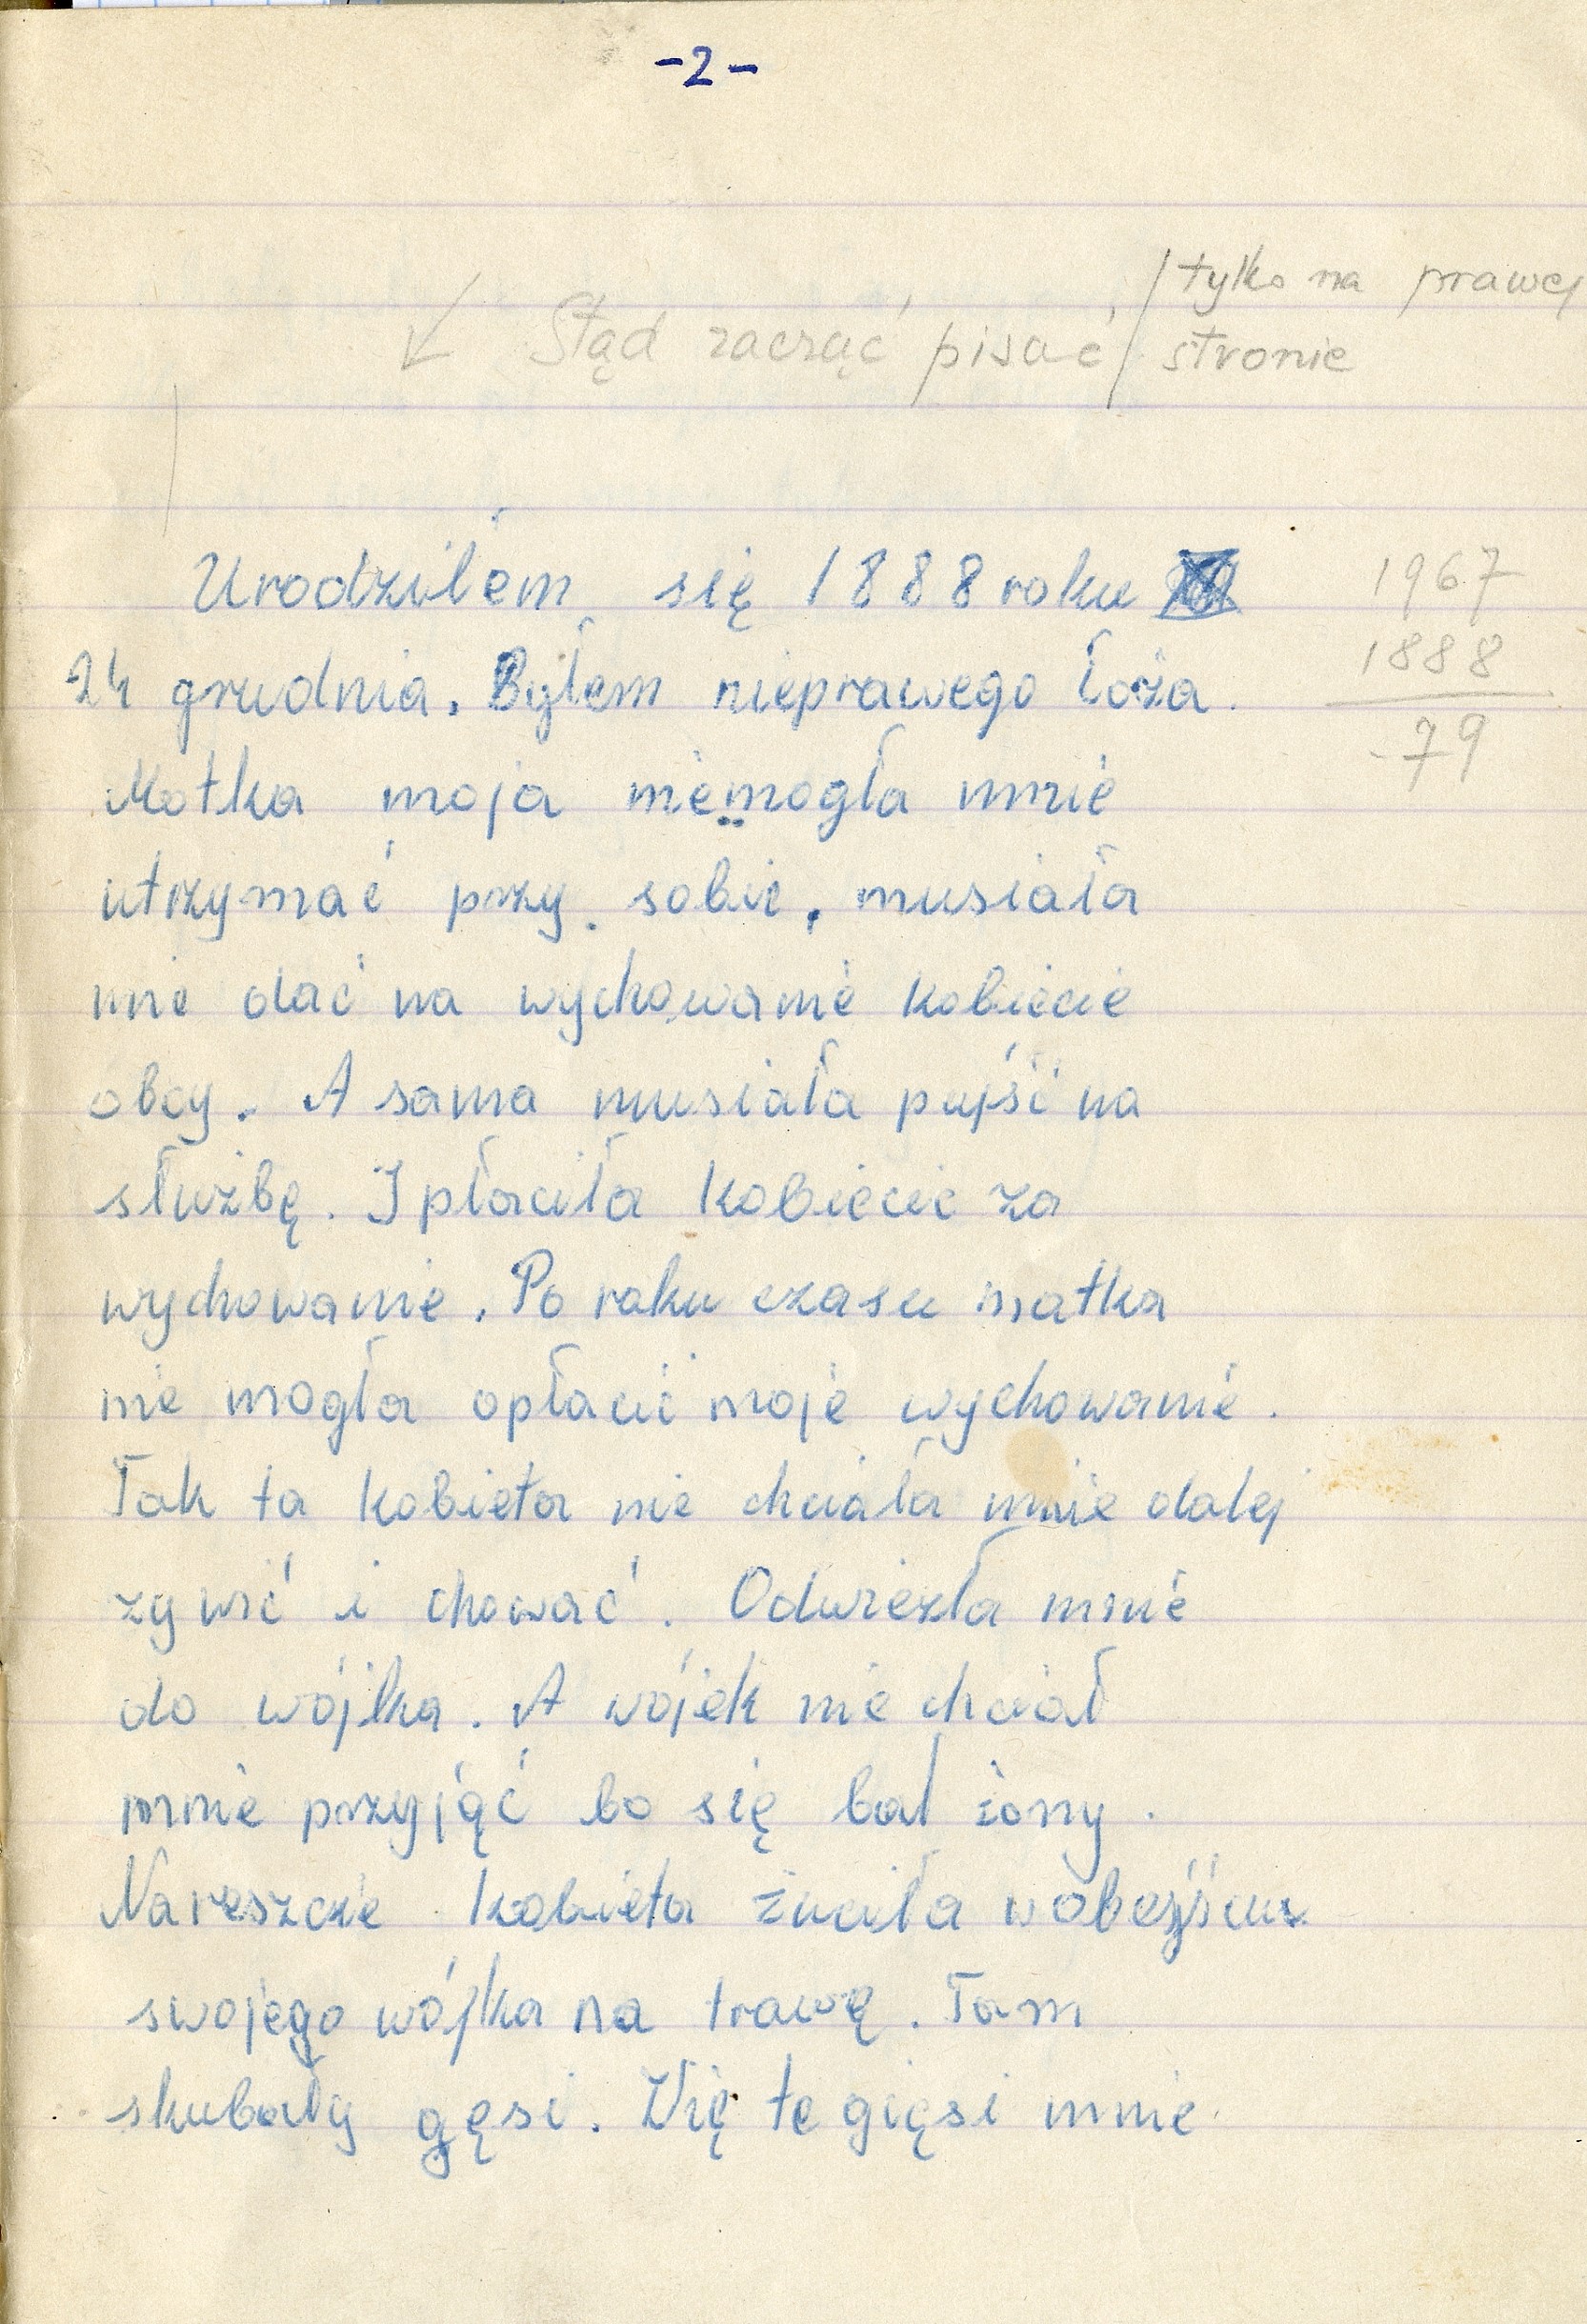 -2-
tylko na prawej
Stąd zacząć pisać stronie
Urodziłem się 1888 roku
1967
24 grudnia. Byłem nieprawego łoża.
1888
79
Matka moja niemogła mnie
utrzymać przy sobie, musiała
mnie dać na wychowanie kobiecie
obcy. A sama musiała pujść na
służbę. I płaciła kobiecie za
wychowanie. Po roku czasu matka
nie mogła opłacić moje wychowanie.
Tak ta kobieta nie chciała mnie dalej
zywić i chować. Odwiezła mnie
do wójka. A wójek nie chciał
mnie przyjąć bo się bał żony.
Nareszcie kobieta żuciła w obejściu
swojego wójka na trawę. Tam
skubały gęsi. Wię te gięsi mnie